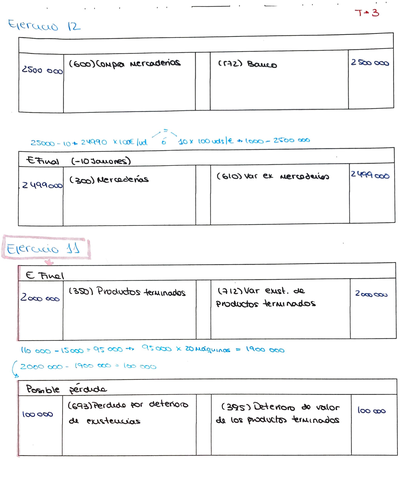 T*3
Ejercicio 12
2500 000 (600) Compra Mercaderías (572) Banco 2 500 000
25000 - 10 → 24990 × 100€/ud ó 10 × 100 uds/€ → 1000 - 2500 000
E Final (-10 Jamones)
2 499 000 (300) Mercaderías (610) Var ex Mercaderías 2 499 000
Ejercicio 11
E Final
2 000 000 (350) Productos terminados (712) Var exist. de
productos terminados 2 000 000
110 000 - 15000 = 95 000 → 95 000 × 20 Máquinas = 1900 000
2000 000 - 1900 000 = 100 000
Posible pérdida
100 000 (693) Perdida por deterioro (395) Deterioro de valor 100 000
de existencias de los productos terminados